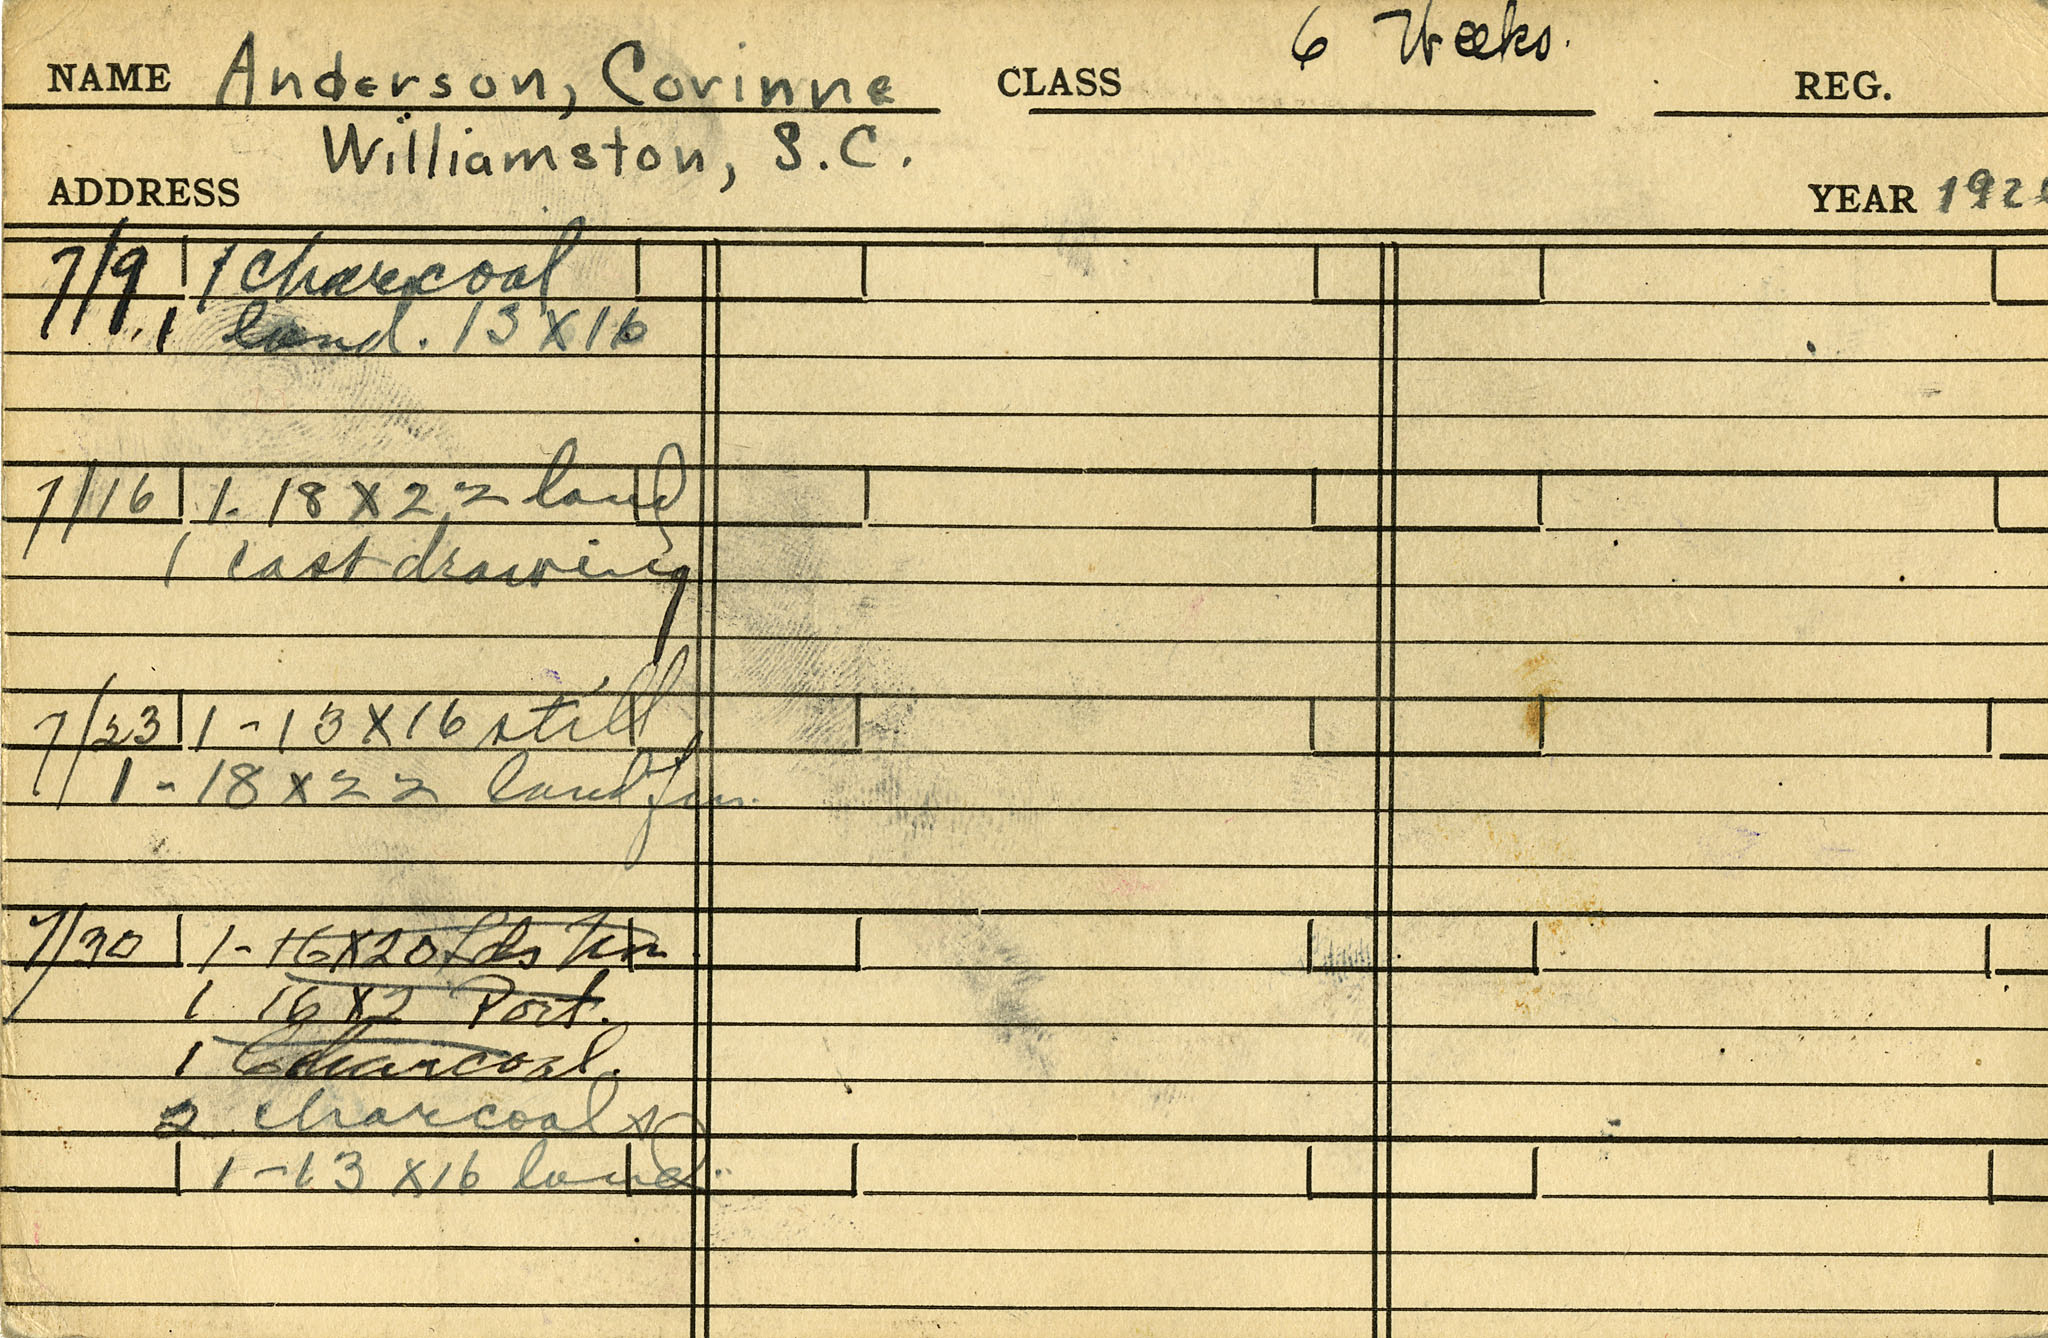 6 Weeks.
NAME Anderson, Corinne CLASS REG.
Williamston, S.C.
ADDRESS YEAR 192
7/9 1 Charcoal
1 land. 13 X 16
7/16 1- 18 X 22 land
1 cast drawing
7/23 1 - 13 X 16 still
1 - 18 X 22 land
7/30 1- 16 X 20
1 16 X 2 Port.
1 Charcoal.
2 charcoal
1 - 13 X 16 land.